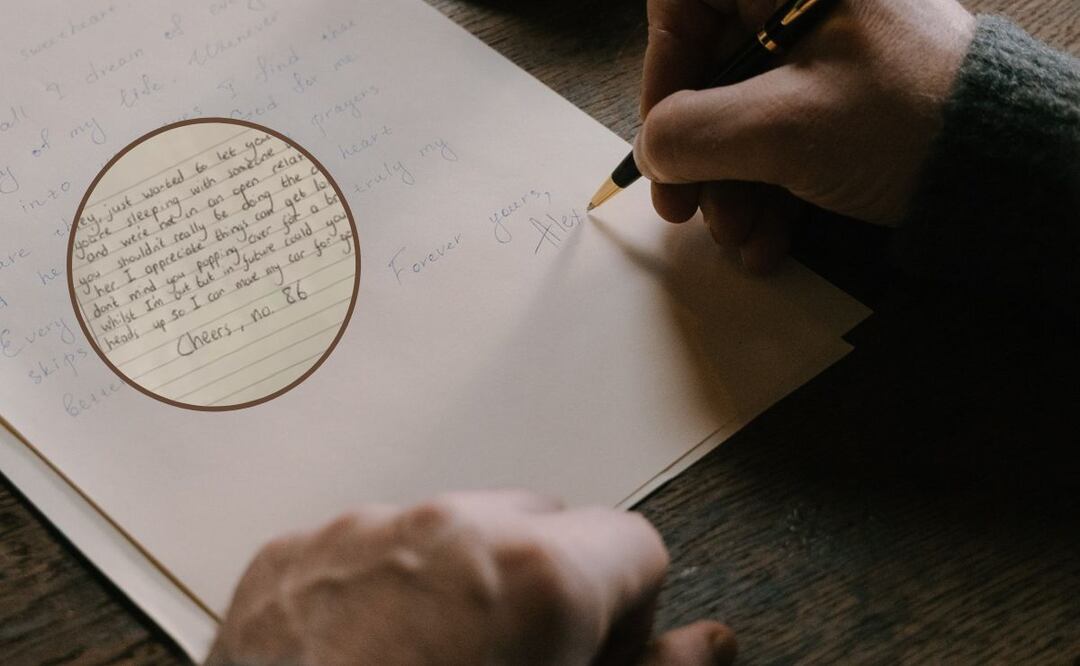 sweetheart
all I dream of every
of my life. Whenever
into eyes I find that
God for me
prayers
heart
truly my
Every
skips
bette
Forever yours,
Alex
ey, just wanted to let you
you're sleeping with someone
and we're not in an open relat
you shouldn't really be doing the
her. I appreciate things can get lo
don't mind you popping over for a br
whilst I'm out but in future could you
heads up so I can move my car for yo
Cheers, no. 86